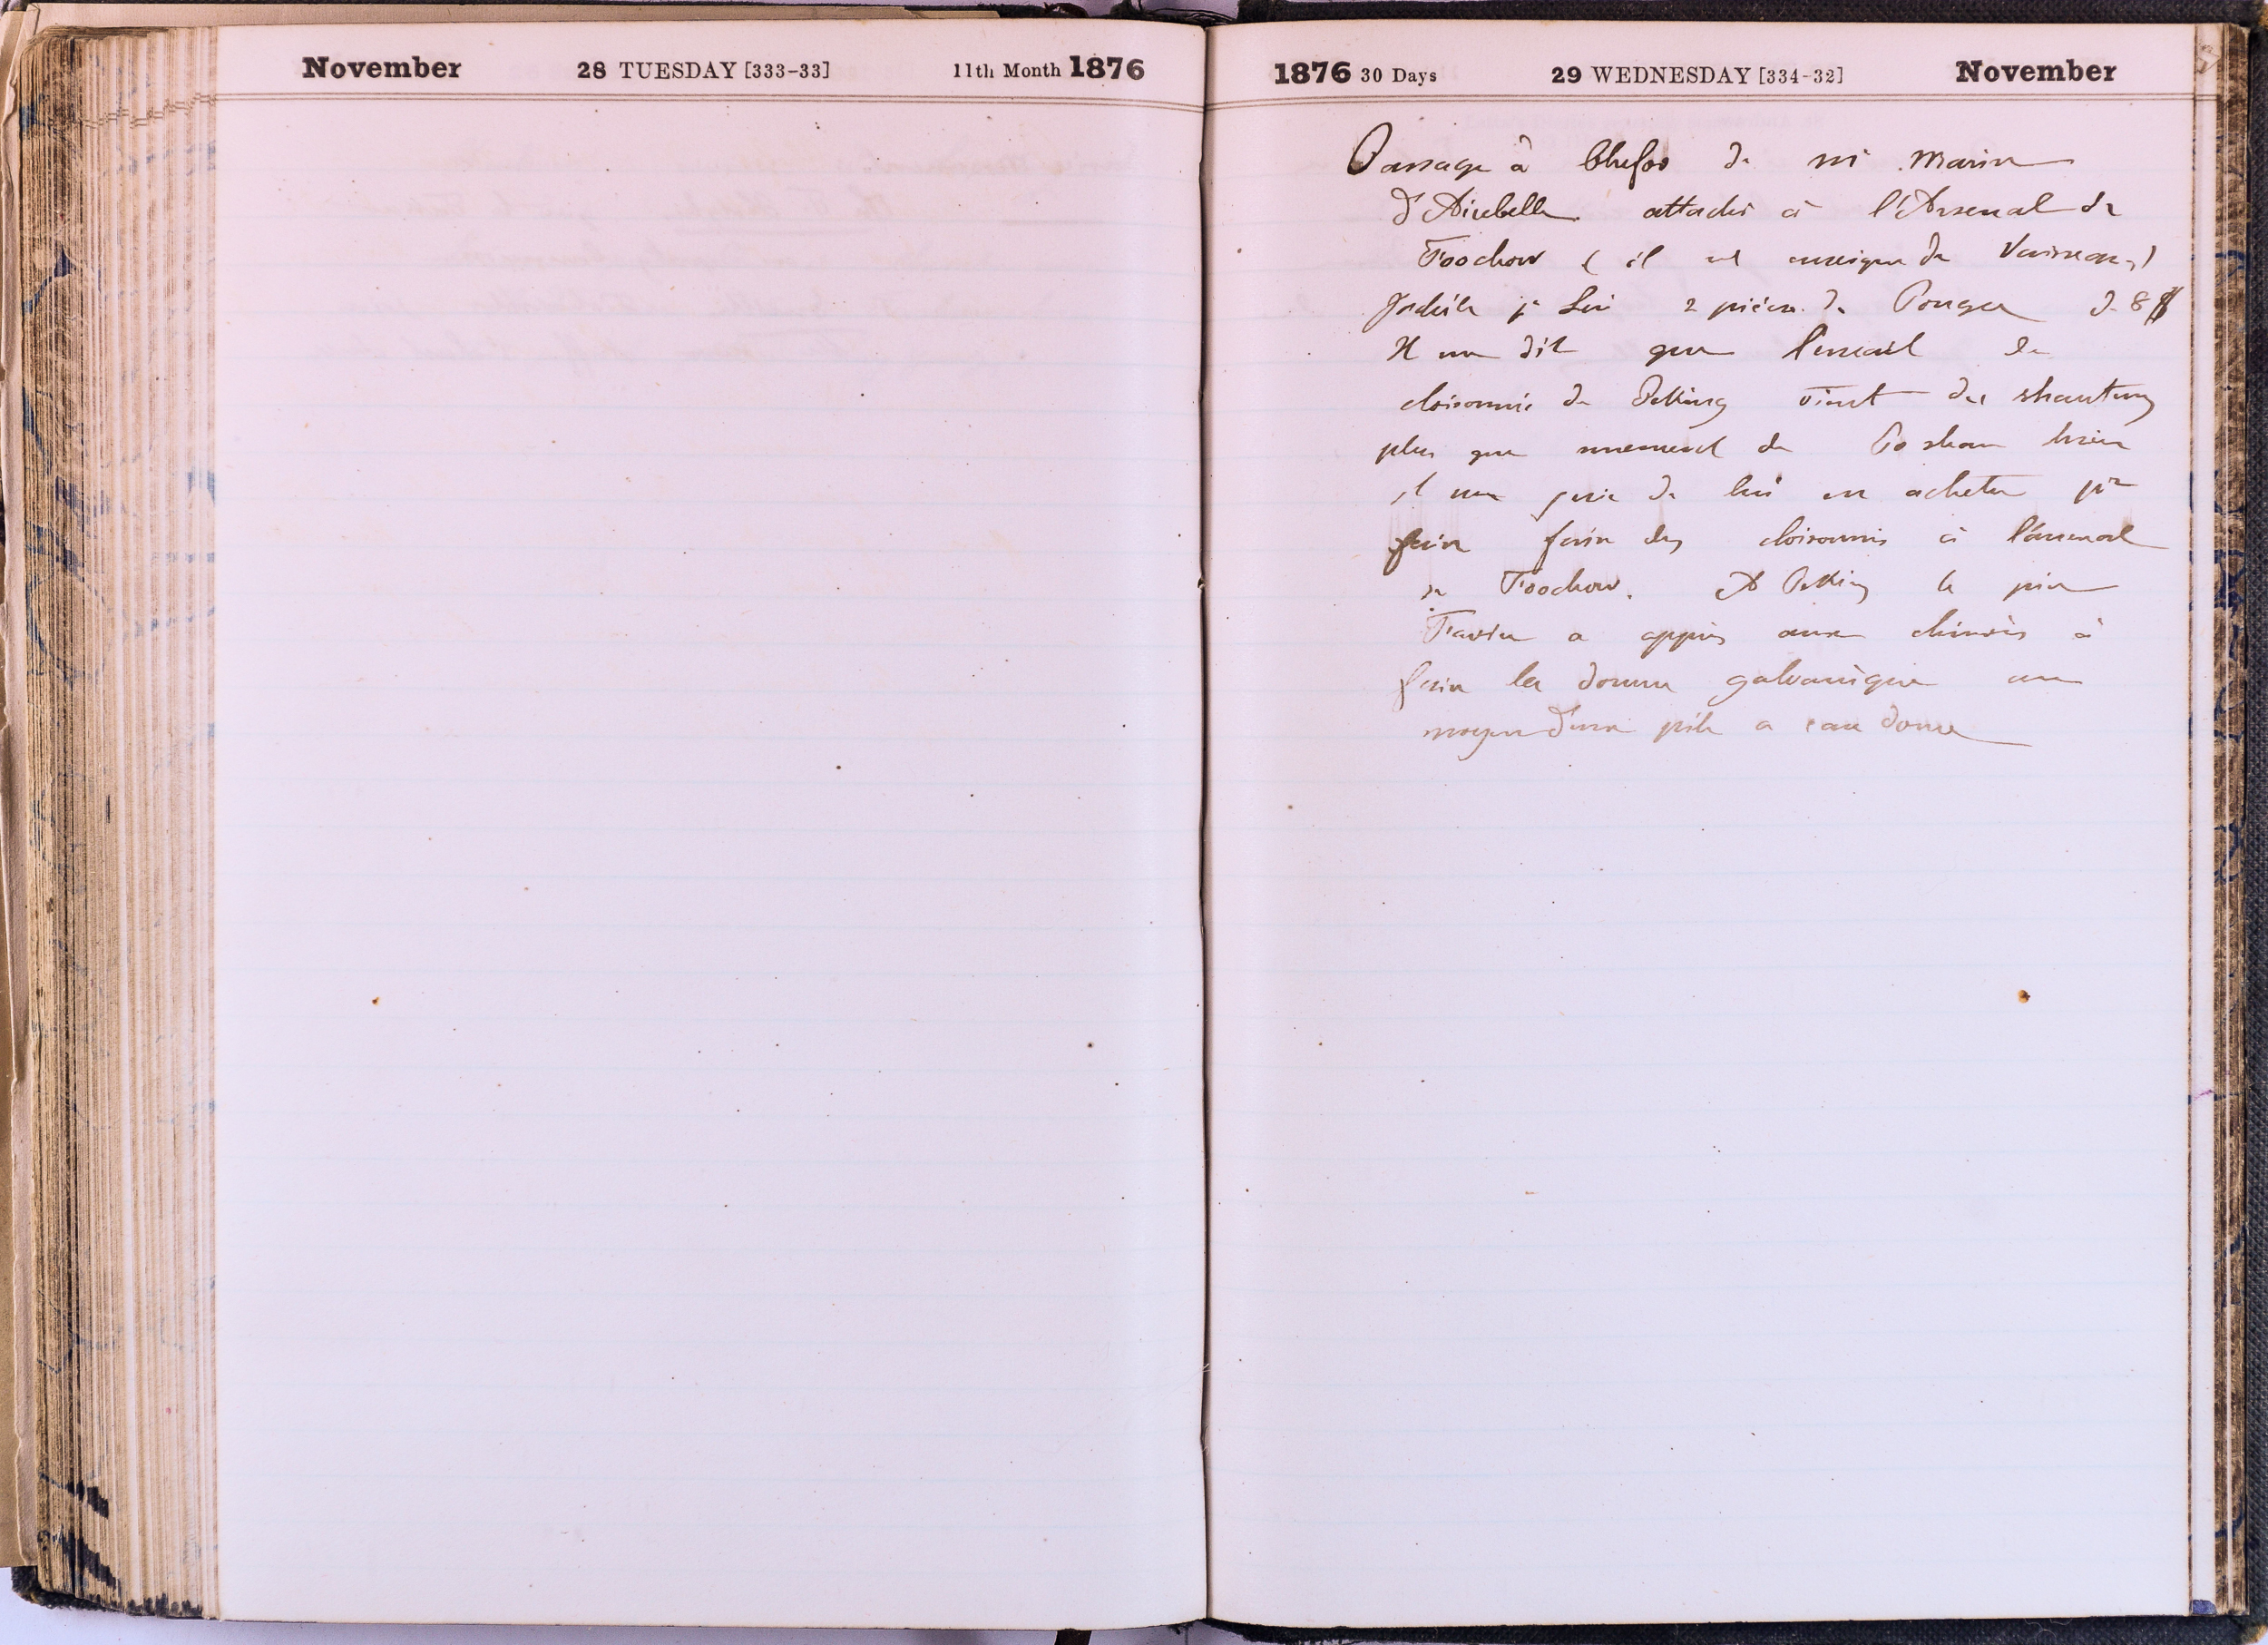 November 28 TUESDAY [333-33] 11th Month 1876
1876 30 Days 29 WEDNESDAY [334-32] November
Passage à Chefoo de mr Marin
d'Aiubelle attaché à l'Arsenal de
Foochow ( il est enseigne de Vaisseau,)
J'achète pr lui 2 pièces de Pongee de 8 $
Il me dit que l'email de
cloisonnis de Peking vient du shantung
plus que surement de Po shan hsien
il me prie de lui en acheter pr
faire faire des cloisonnis à l'arsenal
de Foochow. A Peking le père
Favier a appris aux chinois à
faire la dorure galvanique au
moyen d'une pile a eau douce